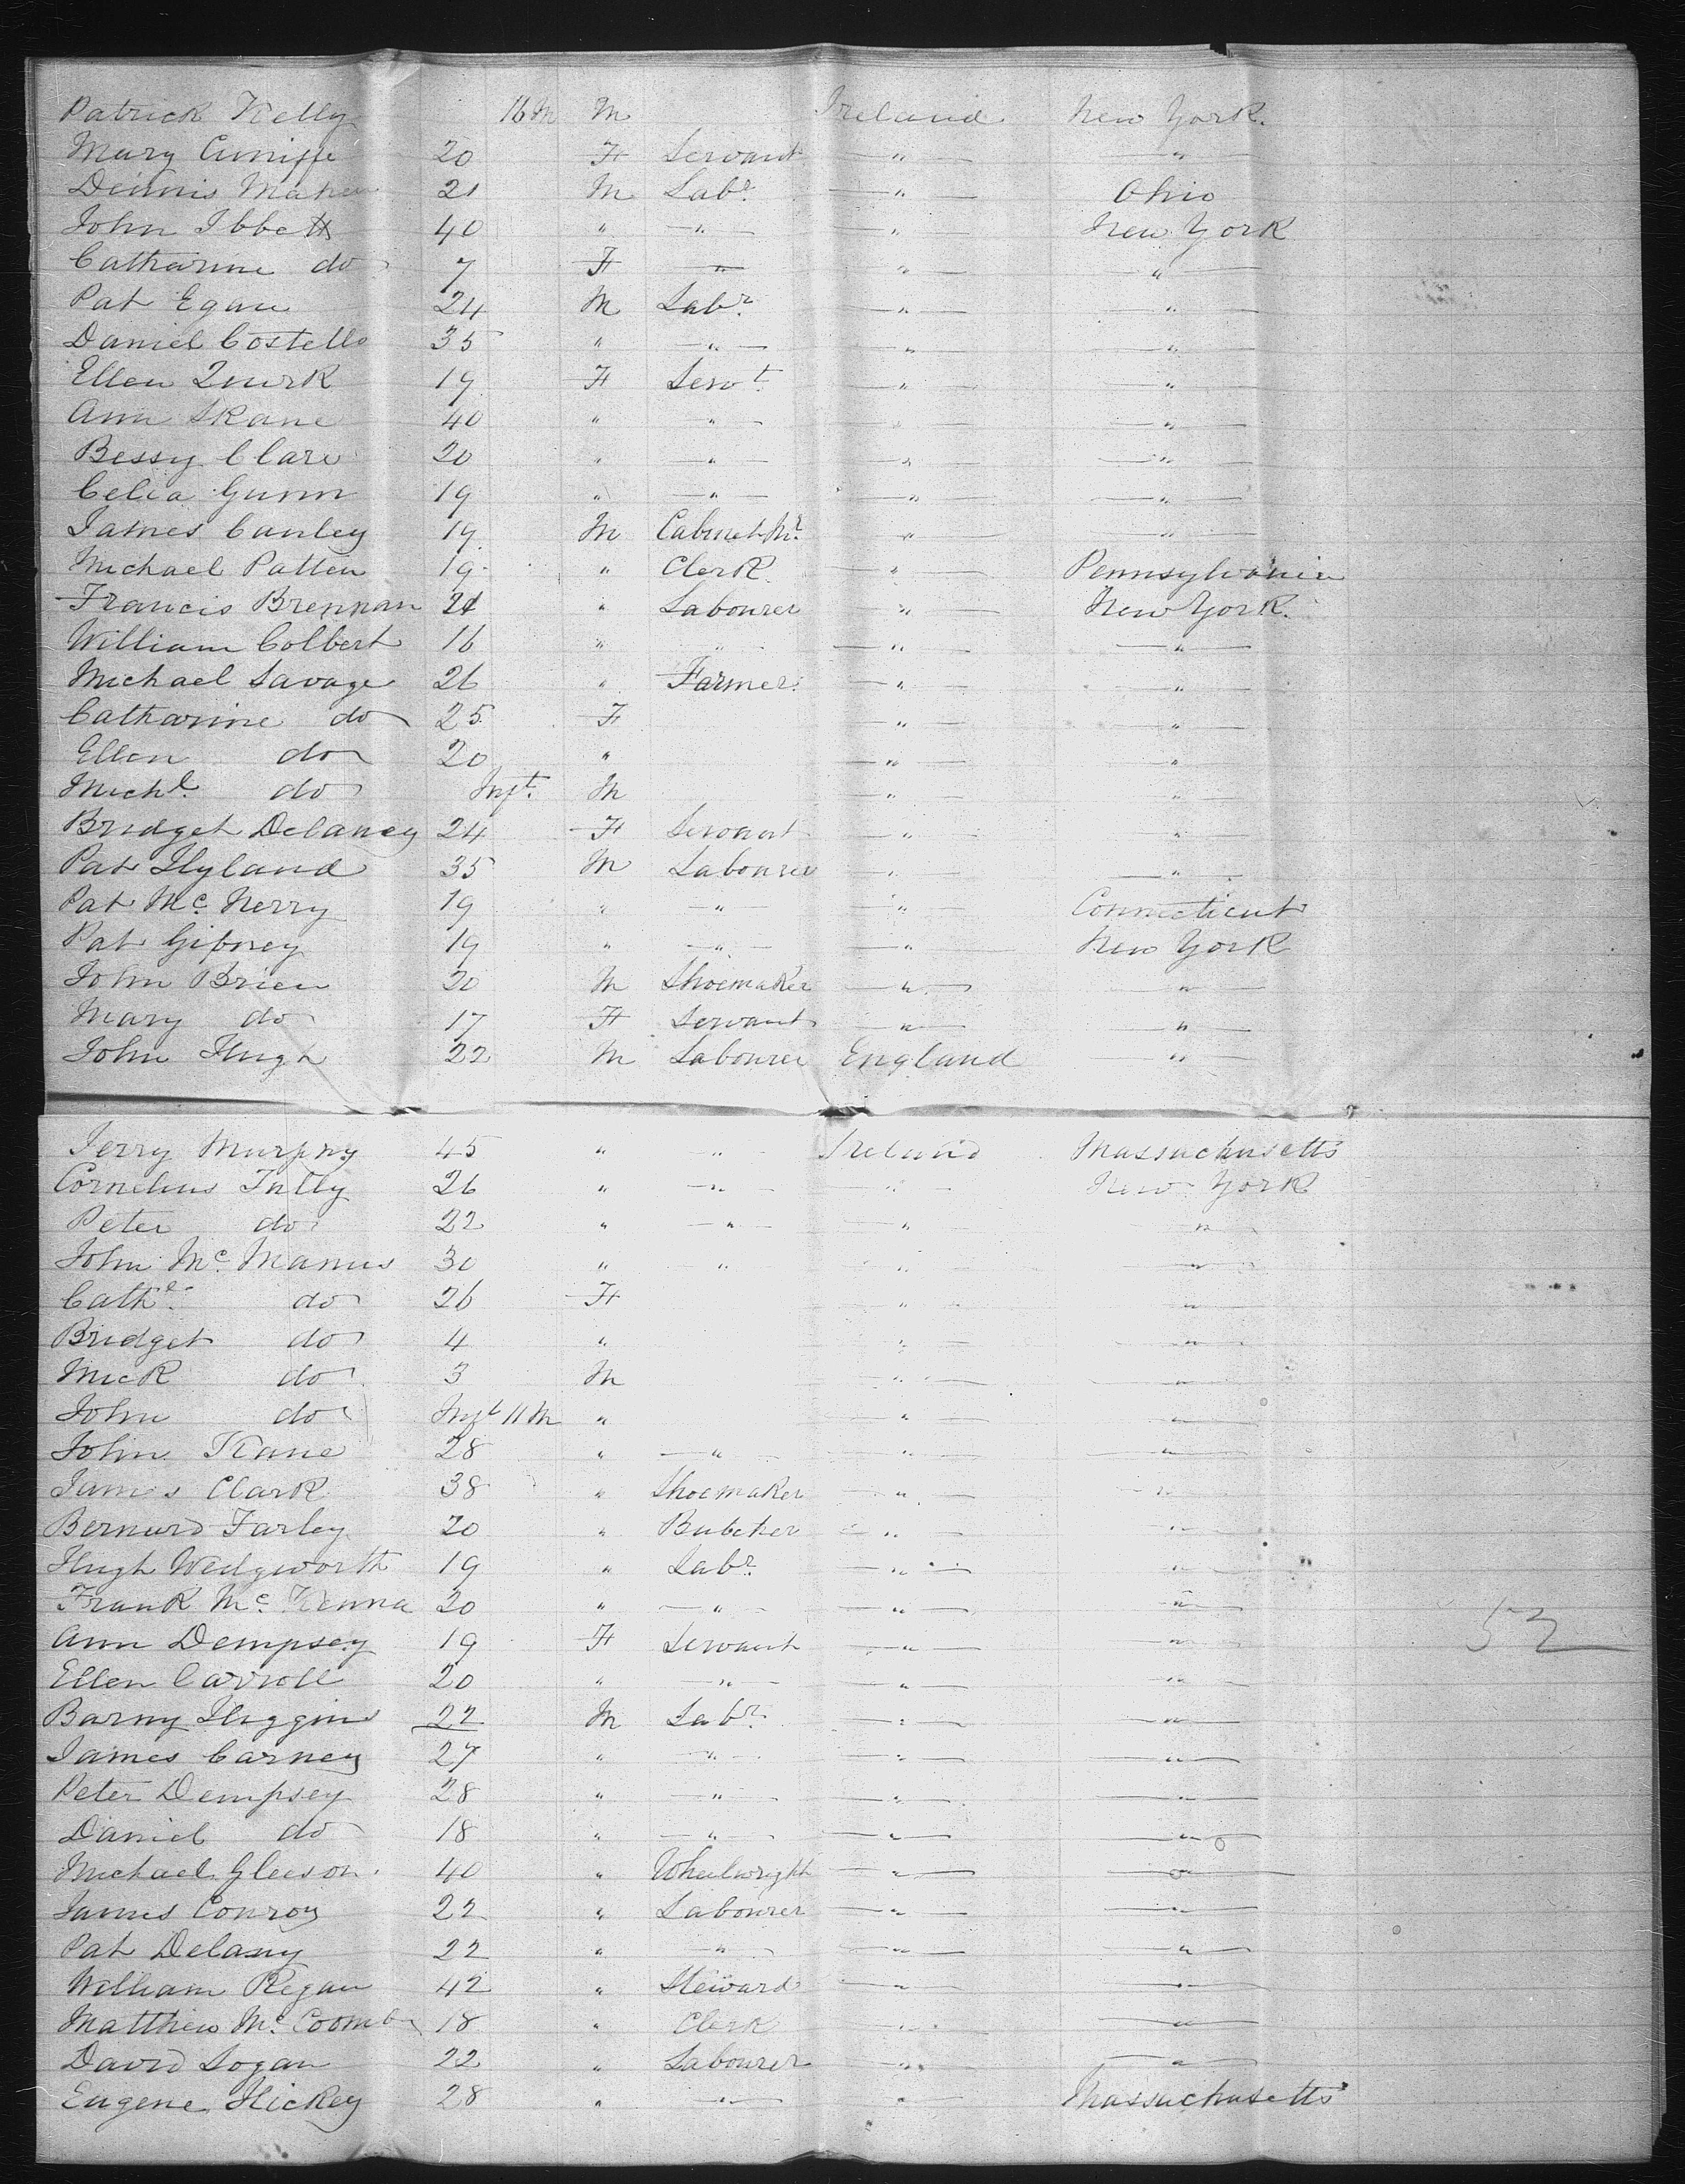 Patrick Kelly 16 M M Ireland New York.
Mary Cuniffe 20 F Servant " "
Dennis Maher 21 M Labr. " Ohio
John Ibbett 40 " " " New York
Catharine do 7 F " " "
Pat Egan 24 M Labr. " "
Daniel Costello 35 " " " "
Ellen Quirk 19 F Servt. " "
Ann Skane 40 " " " "
Bessy Clare 20 " " " "
Celia Gunn 19 " " " "
James Canley 19 M Cabinet Mr. " "
Michael Patten 19 " Clerk " Pennsylvania
Francis Brennan 21 " Labourer " New York.
William Colbert 16 " " " "
Michael Savage 26 " Farmer. " "
Catharine do 25 F " "
Ellen do 20 " " "
Michl. do Inft. M " "
Bridget Delaney 24 F Servant " "
Pat Hyland 35 M Labourer " "
Pat Mc. Nerry 19 " " " Connecticut
Pat Gibney 19 " " " New York
John Brien 20 M Shoemaker " "
Mary do 17 F Servant " "
John Hugh 22 M Labourer England "
Jerry Murphy 45 " " Ireland Massachusetts
Cornelius Tully 26 " " " New York
Peter do 22 " " " "
John Mc. Manus 30 " " " "
Cathe. do 26 F " "
Bridget do 4 " " "
Mick do 3 M " "
John do Inft 11 M " " "
John Kane 28 " " " "
James Clark 38 " Shoemaker " "
Bernard Farley 20 " Butcher " "
Hugh Wedgworth 19 " Labr. " "
Frank Mc. Kenna 20 " " " "
52
Ann Dempsey 19 F Servant " "
Ellen Carroll 20 " " " "
Barny Higgins 22 M Labr. " "
James Carney 27 " " " "
Peter Dempsey 28 " " " "
Daniel do 18 " " " "
Michael Gleeson 40 " Wheelwright " "
James Conroy 22 " Labourer " "
Pat Delany 22 " " " "
William Regan 42 " Steward " "
Matthew Mc. Coomb 18 " Clerk " "
David Logan 22 " Labourer " "
Eugene Hickey 28 " " " Massachusetts